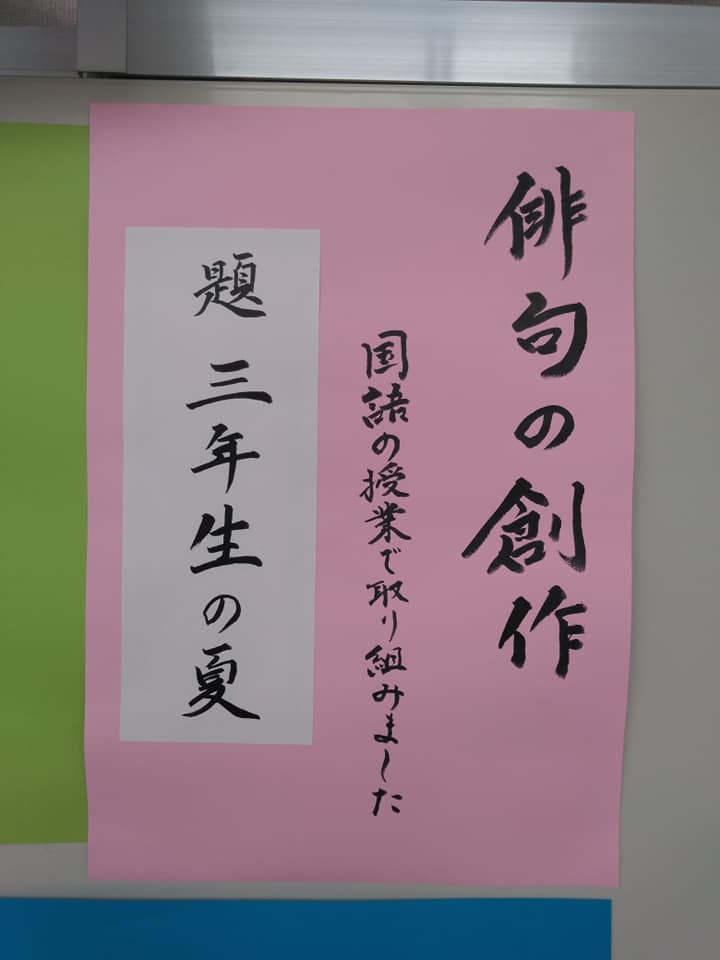 俳句の創作
国語の授業で取り組みました
題 三年生の夏